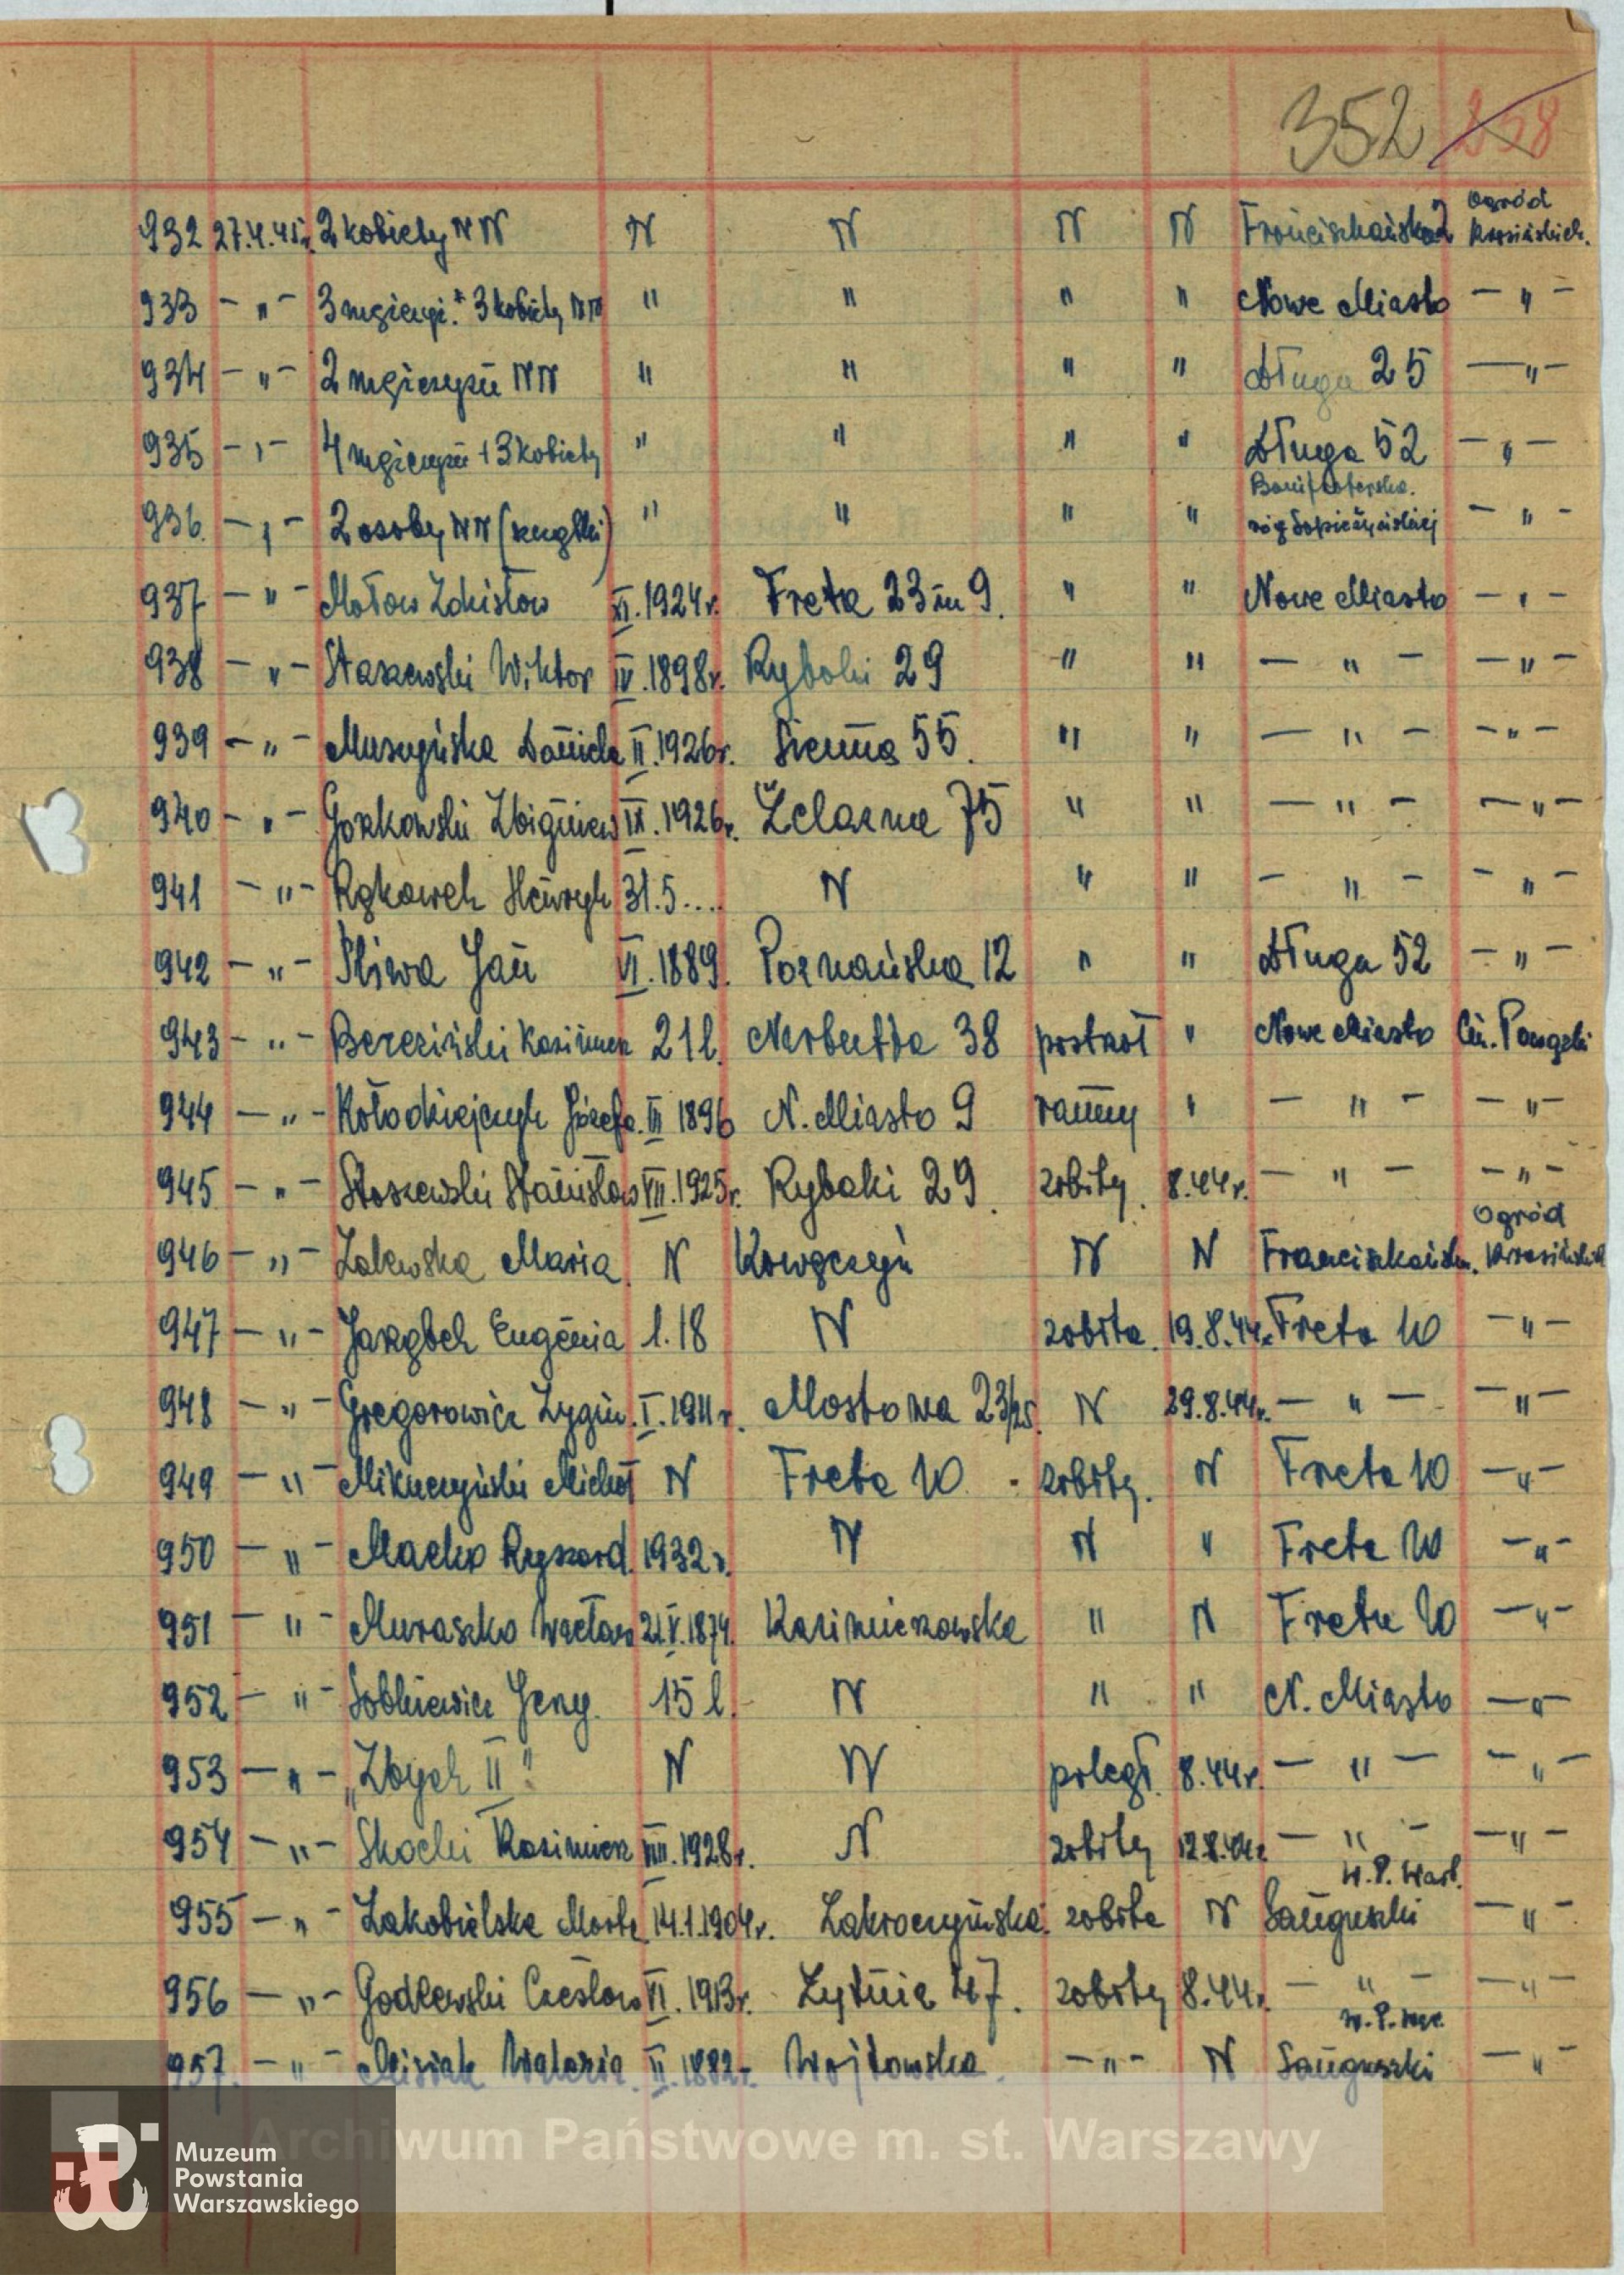 352 258
932 27.4.45r. 2 kobiety NN N N N N Franciszkańska 2 Ogród Krasińskich.
933 - " - 3 mężczyz. + 3 kobiety NN " " " " Nowe Miasto - " -
934 - " - 2 mężczyzn NN " " " " Długa 25 - " -
935 - " - 4 mężczyzn + 3 kobiety " " " " Długa 52 - " -
936. - " - 2 osoby NN (szczątki) " " " " Bonifraterska. róg Sapieżyńskiej - " -
937 - " - Mołow Zdzisław XI.1924r. Freta 23 m 9. " " Nowe Miasto - " -
938 - " - Staszewski Wiktor IV.1898r. Rybaki 29 " " - " - - " -
939 - " - Muszyńska Daniela II.1926r. Sienna 55. " " - " - - " -
940 - " - Gorkowski Zbigniew IX.1926r. Żelazna 75 " " - " - - " -
941 - " - Henryk 31.5.... N " " - " - - " -
942 - " - Śliwa Jan VI.1889. Poznańska 12 " " Długa 52 - " -
943 - " - Bereziński Kazimierz 21 l. Narbutta 38 postrzał " Nowe Miasto Cm. Powązki
944 - " - Kołodziejczyk Józefa. III 1896 N. Miasto 9 ranny " - " - - " -
945 - " - Staszewski Stanisław VII.1925r. Rybaki 29. zabity. 8.44r. - " - - " -
946 - " - Zalewska Maria. N Kawęczyn N N Franciszkańska. Ogród Krasińskich
947 - " - Jarząbek Eugenia l.18 N zabita. 19.8.44r. Freta 10 - " -
948 - " - Gregorowicz Zygm. I.1911r. Mostowa 23/25. N 29.8.44r. - " - - " -
949 - " - Mikuczyński Michał N Freta 10. zabity. N Freta 10 - " -
950 - " - Macko Ryszard. 1932r. N N " Freta 10 - " -
951 - " - Muraszko Wacław 21.V.1874. Kazimierzowska " N Freta 10 - " -
952 - " - Sobkiewicz Jerzy. 15 l. N " " N. Miasto - " -
953 - " - „Zbych II" N N poległ. 8.44r. - " - - " -
954 - " - Skocki Kazimierz VIII.1928r. N zabity 12.8.44r. - " - - " -
955 - " - Zakobielska Marta 14.1.1904r. Zakroczymska. zabita N W.P. Wart. Sanguszki - " -
956 - " - Godlewski Czesław VI.1913r. Żytnia 47. zabity 8.44r. - " - - " -
957. - " - Misiak Waleria. II.1882r. Wójtowska. - " - N Sanguszki - " -
Archiwum Państwowe m. st. Warszawy
Muzeum
Powstania
Warszawskiego